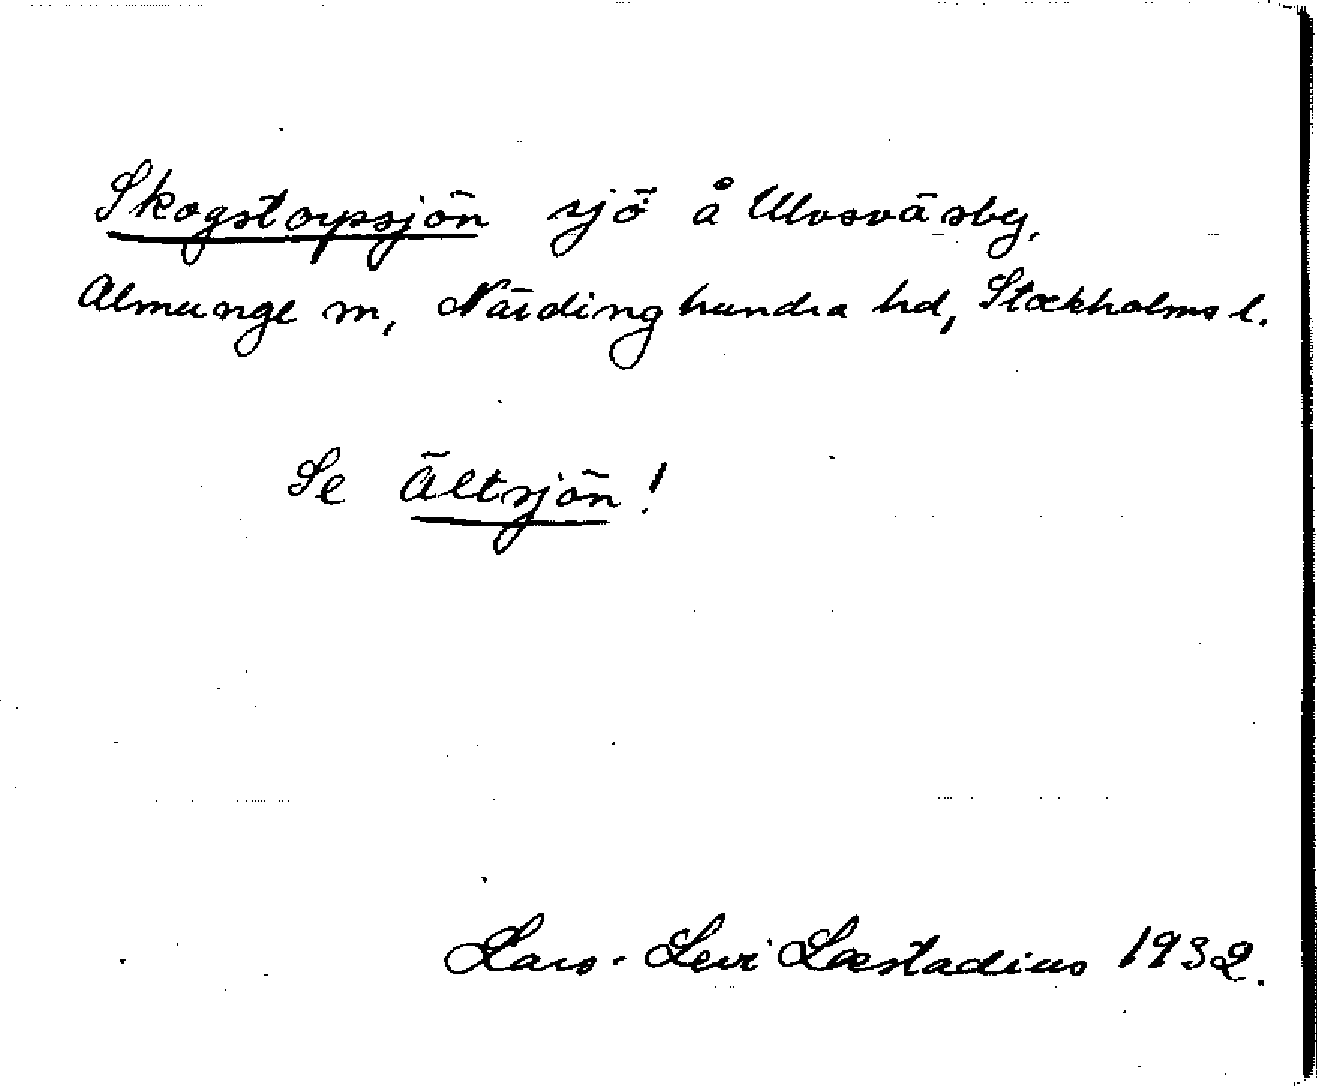 Skogstorpsjön sjö å Ulvsväsby,
Almunge sn, Närdinghundra hd, Stockholms l.
Se Ältsjön!
Lars-Levi Læstadius 1932.